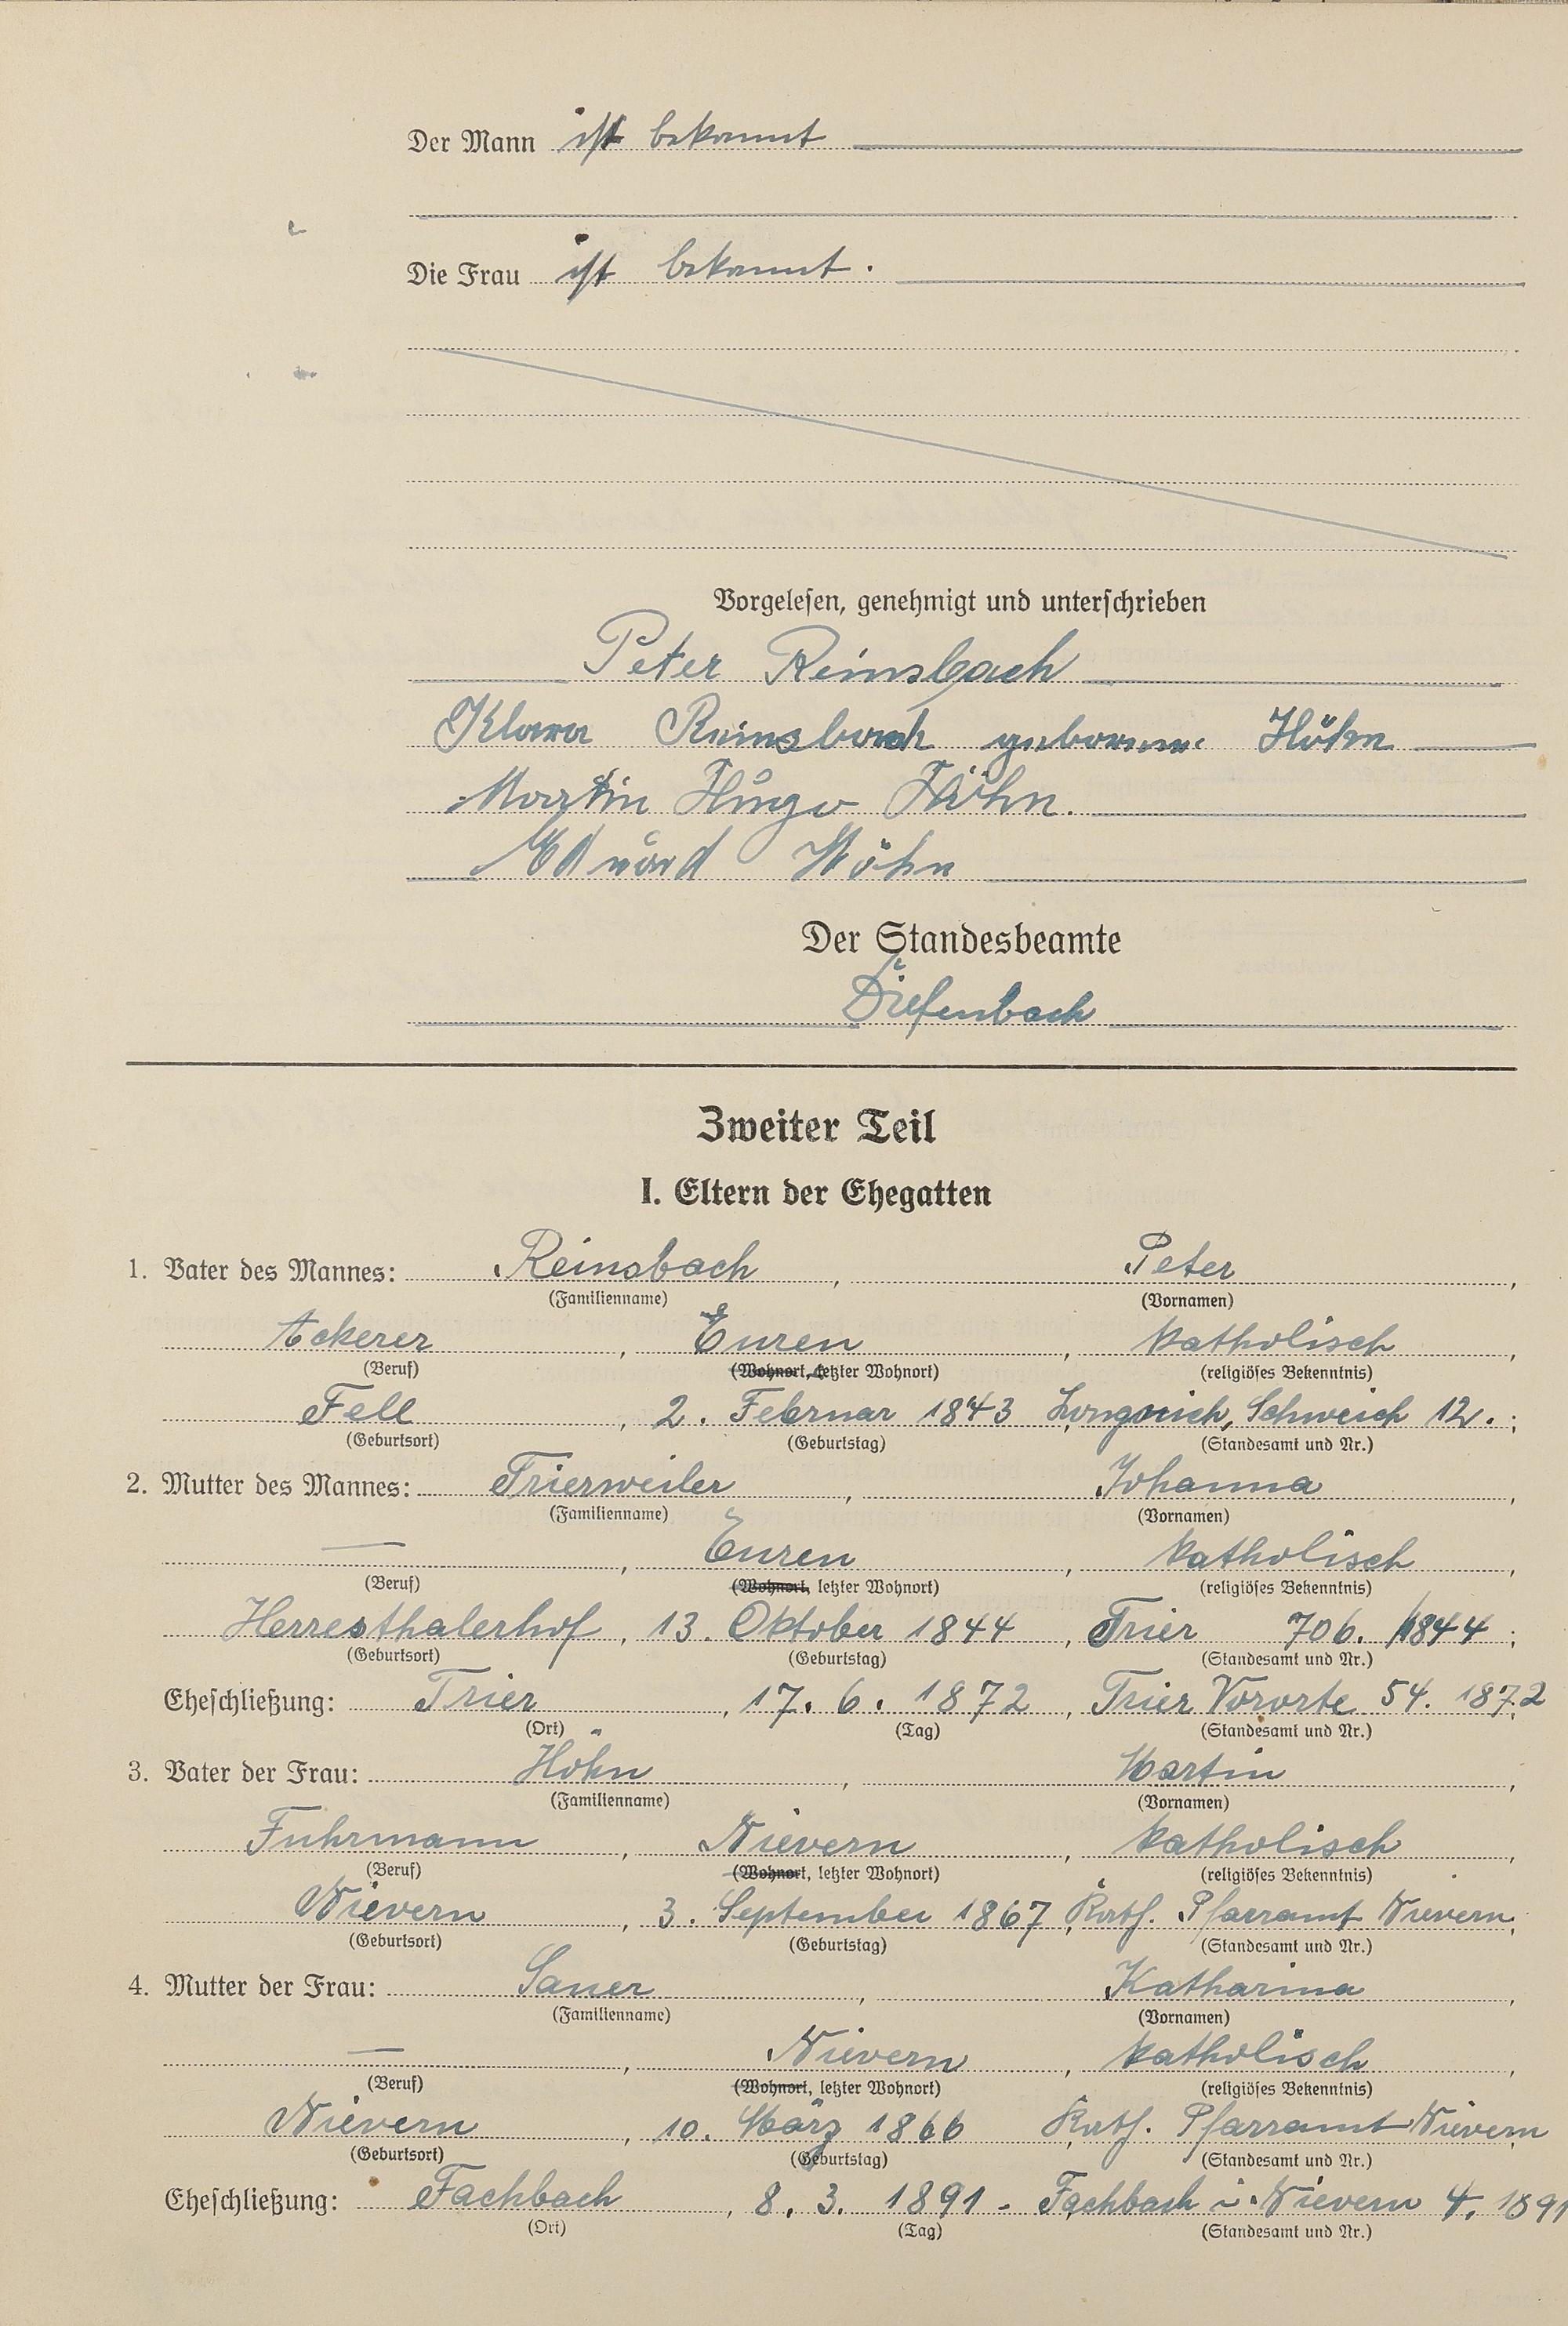 Der Mann ist bekannt
Die Frau ist bekannt.
Vorgelesen, genehmigt und unterschrieben
Peter Reinsbach
Klara Reinsbach geborene Höhn
Martin Hugo Höhn.
Eduard Höhn
Der Standesbeamte
Diefenbach
Zweiter Teil
I. Eltern der Ehegatten
1. Vater des Mannes: Reinsbach, Peter,
(Familienname) (Vornamen)
Ackerer, Euren, katholisch,
(Beruf) (Wohnort, letzter Wohnort) (religiöses Bekenntnis)
Fell, 2. Februar 1843, Longuich, Schweich 12.;
(Geburtsort) (Geburtstag) (Standesamt und Nr.)
2. Mutter des Mannes: Trierweiler, Johanna,
(Familienname) (Vornamen)
—, Euren, katholisch,
(Beruf) (Wohnort, letzter Wohnort) (religiöses Bekenntnis)
Herresthalerhof, 13. Oktober 1844, Trier 706. /1844;
(Geburtsort) (Geburtstag) (Standesamt und Nr.)
Eheschließung: Trier, 17. 6. 1872, Trier Vororte 54. 1872;
(Ort) (Tag) (Standesamt und Nr.)
3. Vater der Frau: Höhn, Martin,
(Familienname) (Vornamen)
Fuhrmann, Nievern, katholisch,
(Beruf) (Wohnort, letzter Wohnort) (religiöses Bekenntnis)
Nievern, 3. September 1867, Kath. Pfarramt Nievern;
(Geburtsort) (Geburtstag) (Standesamt und Nr.)
4. Mutter der Frau: Sauer, Katharina,
(Familienname) (Vornamen)
—, Nievern, katholisch,
(Beruf) (Wohnort, letzter Wohnort) (religiöses Bekenntnis)
Nievern, 10. März 1866, Kath. Pfarramt Nievern;
(Geburtsort) (Geburtstag) (Standesamt und Nr.)
Eheschließung: Fachbach, 8. 3. 1891 - Fachbach i. Nievern 4. 1891
(Ort) (Tag) (Standesamt und Nr.)